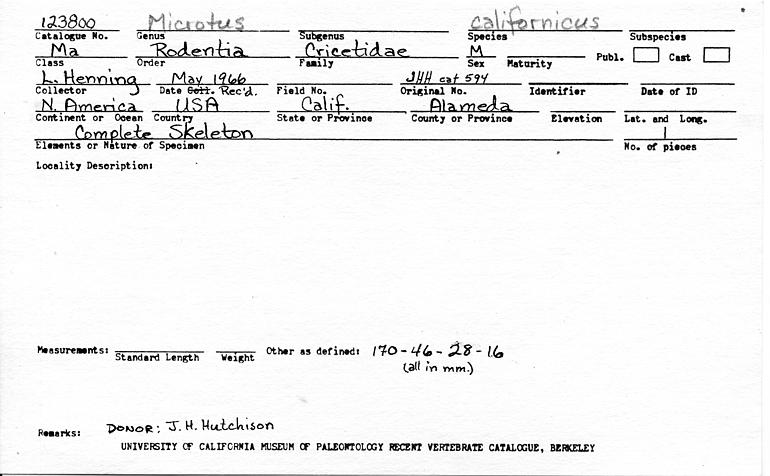 123800 Microtus californicus
Catalogue No. Genus Subgenus Species Subspecies
Ma Rodentia Cricetidae M Publ. Cast
Class Order Family Sex Maturity
L. Henning May 1966 JHH cat 594
Collector Date Coll. Rec'd. Field No. Original No. Identifier Date of ID
N. America USA Calif. Alameda
Continent or Ocean Country State or Province County or Province Elevation Lat. and Long.
Complete Skeleton 1
Elements or Nature of Specimen No. of pieces
Locality Description:
Measurements: Other as defined: 170-46-28-16
Standard Length Weight (all in mm.)
Remarks: DONOR: J. H. Hutchison
UNIVERSITY OF CALIFORNIA MUSEUM OF PALEONTOLOGY RECENT VERTEBRATE CATALOGUE, BERKELEY